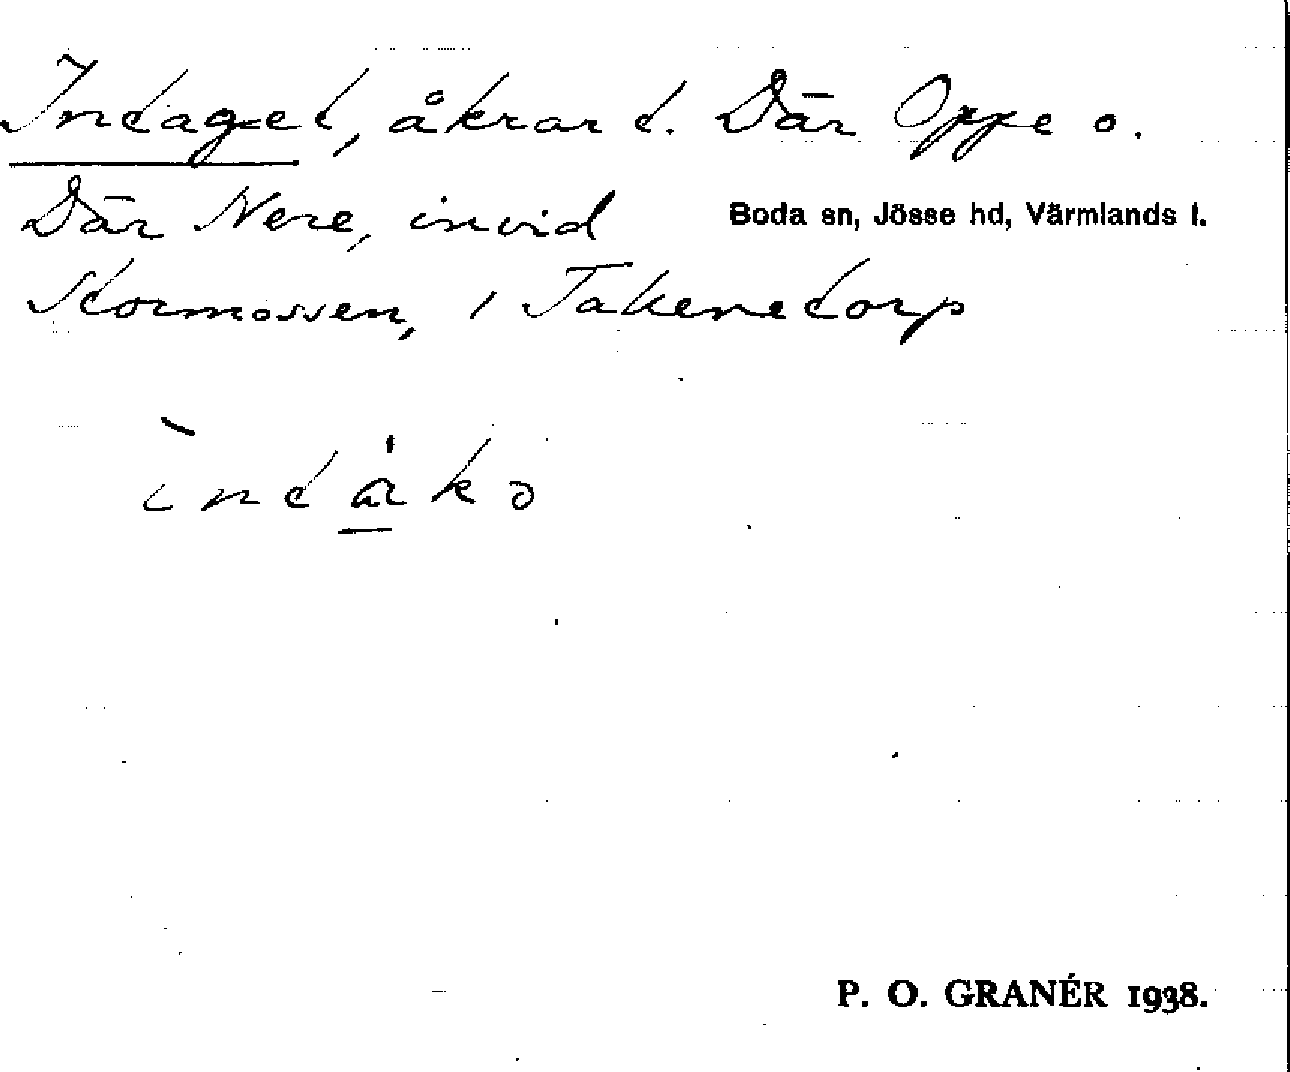 Intaget, åkrar t. Där Oppe o.
Där Nere, invid
Boda sn, Jösse hd, Värmlands l.
Stormossen, i Takenetorp
ìntákɔ
P. O. GRANÉR 1938.